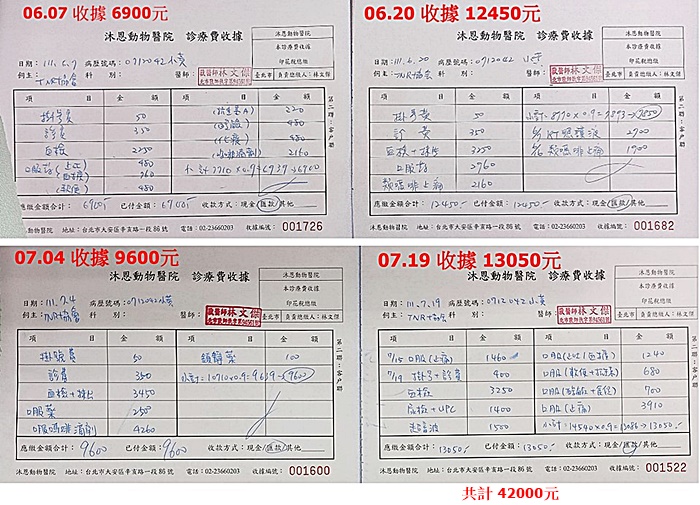 06.07 收據 6900元
沐恩動物醫院 診療費收據
沐恩動物醫院
本診療費收據
印花稅總繳
臺北市 負責總繳人:林文傑
日期:111.6.7 病歷號碼:0712042小黃
飼主:TNR協會 科 別: 醫師: 獸醫師林文傑
項 目 金 額 項 目 金 額
掛號費 50 220
診費 350 480
血檢 2250 480
480 2150
360 小計7710×0.9=6939→6900
480
應繳金額合計:6900 已付金額:6900 收款方式:現金/匯款/其他
沐恩動物醫院 地址:台北市大安區辛亥路一段86號 電話:02-23660203 收據編號:001726
第二聯:客戶聯
06.20 收據 12450元
沐恩動物醫院 診療費收據
沐恩動物醫院
本診療費收據
印花稅總繳
臺北市 負責總繳人:林文傑
日期:111.6.20 病歷號碼:0712042
飼主:TNR協會 科 別: 醫師: 獸醫師林文傑
項 目 金 額 項 目 金 額
掛號費 50 小計=8770×0.9=7893→7850
診費 350 2700
血檢+ 3250 1900
口服藥 2960
類嗎啡止痛 2160
應繳金額合計:12450 已付金額:12450 收款方式:現金/匯款/其他
沐恩動物醫院 地址:台北市大安區辛亥路一段86號 電話:02-23660203 收據編號:001682
第二聯:客戶聯
07.04 收據 9600元
沐恩動物醫院 診療費收據
沐恩動物醫院
本診療費收據
印花稅總繳
臺北市 負責總繳人:林文傑
日期:111.7.4 病歷號碼:0712042小黃
飼主:TNR協會 科 別: 醫師: 獸醫師林文傑
項 目 金 額 項 目 金 額
掛號費 50 100
診費 350 小計=10710×0.9=9639→9600
血檢+ 3450
口服藥 250
4260
應繳金額合計:9600 已付金額:9600 收款方式:現金/匯款/其他
沐恩動物醫院 地址:台北市大安區辛亥路一段86號 電話:02-23660203 收據編號:001600
第二聯:客戶聯
07.19 收據 13050元
沐恩動物醫院 診療費收據
沐恩動物醫院
本診療費收據
印花稅總繳
臺北市 負責總繳人:林文傑
日期:111.7.19 病歷號碼:0712042小黃
飼主:TNR協會 科 別: 醫師: 獸醫師林文傑
項 目 金 額 項 目 金 額
7/15 口服(止痛) 1460 1240
7/19 掛號+診費 400 680
血檢 3250 700
尿檢+UPC 1400 口服(止痛) 3910
超音波 1500 小計=14540×0.9=13086→13050
應繳金額合計:13050 已付金額:13050 收款方式:現金/匯款/其他
沐恩動物醫院 地址:台北市大安區辛亥路一段86號 電話:02-23660203 收據編號:001522
第二聯:客戶聯
共計 42000元